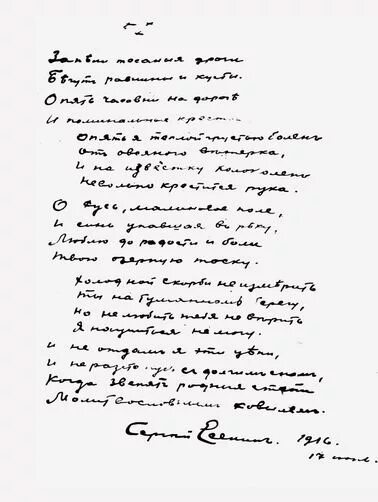 Запели тесаныя дроги
Бѣгутъ равнины и кусты.
Опять часовни на дорогѣ
И поминальные кресты
Опять я теплой грустью боленъ
Отъ овсяного вѣтерка,
И на извѣстку колоколенъ
Невольно крестится рука.
О Русь, малиновое поле,
И синь упавшая въ рѣку,
Люблю до радости и боли
Твою озерную тоску.
Холодной скорби не измѣрить
Ты на туманномъ берегу,
Но не любить тебя не вѣрить
Я научиться не могу.
И не отдамъ я эти цѣпи,
И не съ долгимъ сномъ,
Когда звенятъ родныя степи
Молитвословнымъ ковылемъ.
Сергѣй Есенинъ. 1916.
17